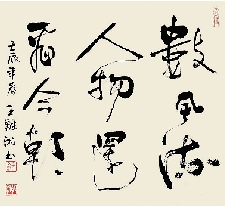 數風流
人物還
看今朝
壬辰年